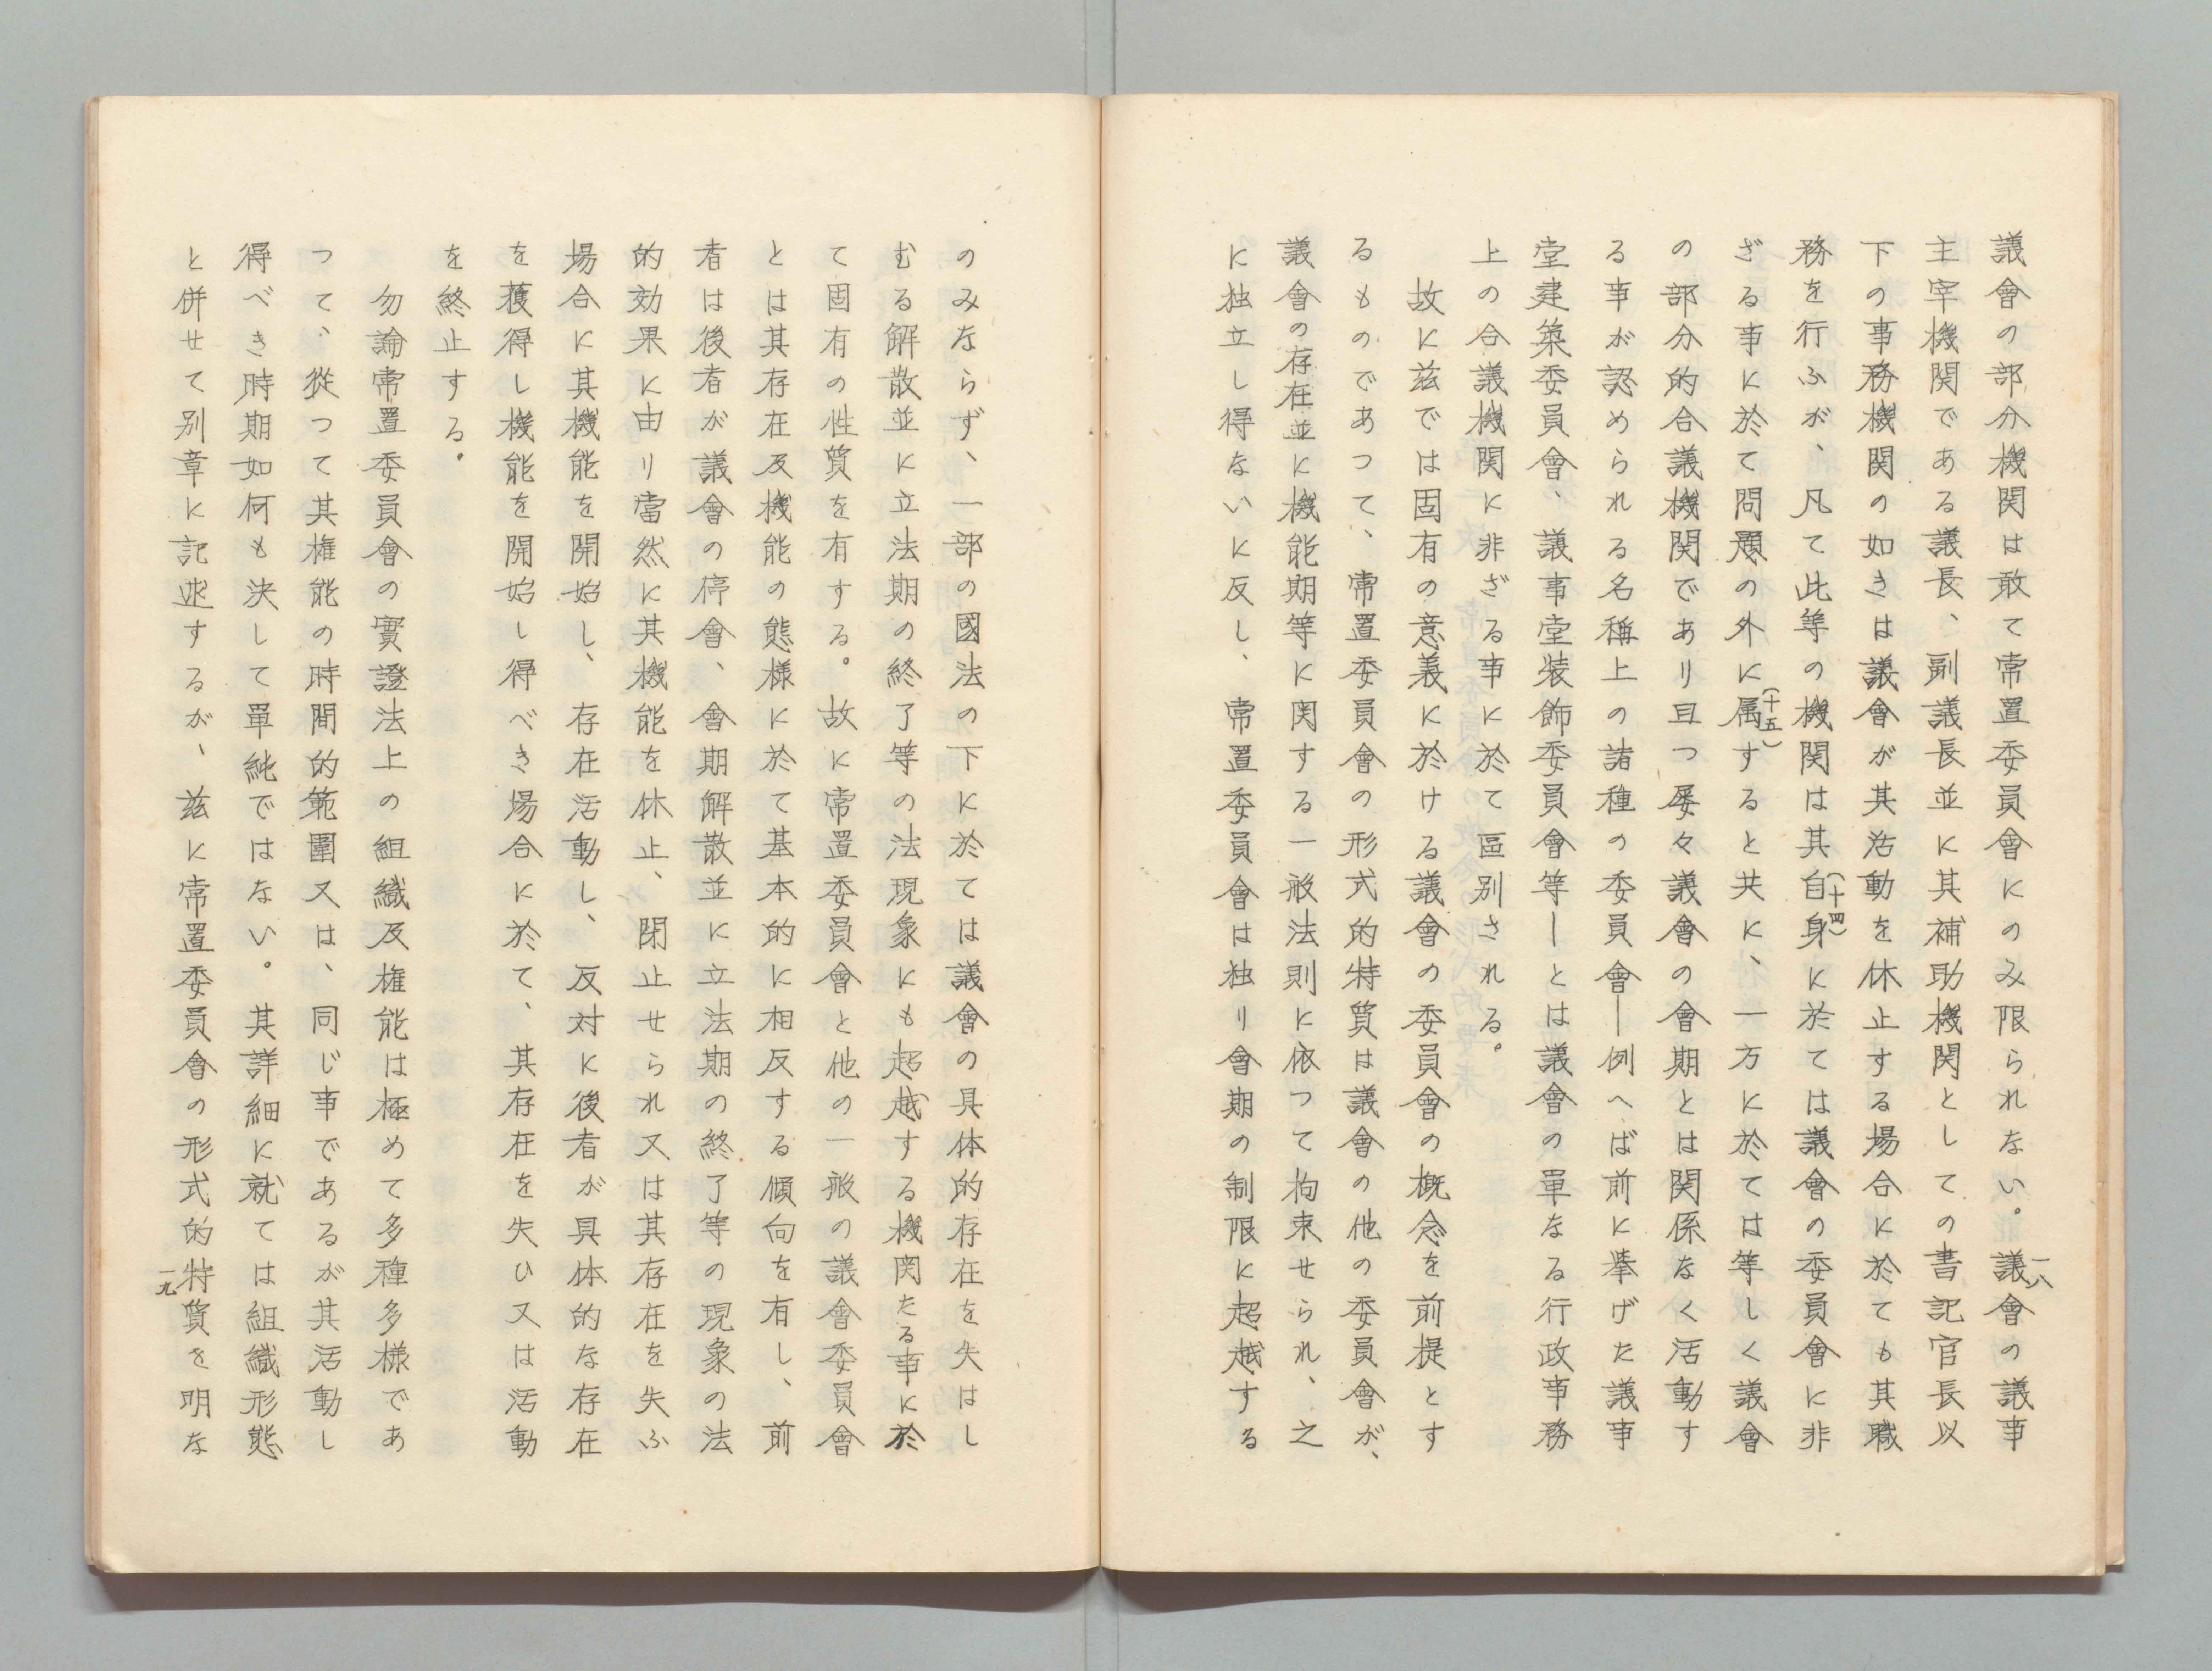 議會の部分機関は敢て常置委員會にのみ限られない。議會の議事
主宰機関である議長、副議長並に其補助機関としての書記官長以
下の事務機関の如きは議會が其活動を休止する場合に於ても其職
務を行ふが、凡て此等の機関は其自身(十四)に於ては議會の委員會に非
ざる事に於て問題の外に属(十五)すると共に、一方に於ては等しく議會
の部分的合議機関であり且つ屡々議會の會期とは関係なく活動す
る事が認められる名稱上の諸種の委員會―例へば前に擧げた議事
堂建築委員會、議事堂装飾委員會等―とは議會の單なる行政事務
上の合議機関に非ざる事に於て區別される。
故に茲では固有の意義に於ける議會の委員會の概念を前提とす
るものであつて、常置委員會の形式的特質は議會の他の委員會が、
議會の存在並に機能期等に関する一般法則に依つて拘束せられ、之
に独立し得ないに反し、常置委員會は独り會期の制限に超越する
一八
のみならず、一部の國法の下に於ては議會の具体的存在を失はし
むる解散並に立法期の終了等の法現象にも超越する機関たる事に於
て固有の性質を有する。故に常置委員會と他の一般の議會委員會
とは其存在及機能の態様に於て基本的に相反する傾向を有し、前
者は後者が議會の停會、會期解散並に立法期の終了等の現象の法
的効果に由り當然に其機能を休止、閉止せられ又は其存在を失ふ
場合に其機能を開始し、存在活動し、反対に後者が具体的な存在
を獲得し機能を開始し得べき場合に於て、其存在を失ひ又は活動
を終止する。
勿論常置委員會の實證法上の組織及権能は極めて多種多様であ
つて、従つて其権能の時間的範圍又は、同じ事であるが其活動し
得べき時期如何も決して單純ではない。其詳細に就ては組織形態
と併せて別章に記述するが、茲に常置委員會の形式的特質を明な
一九